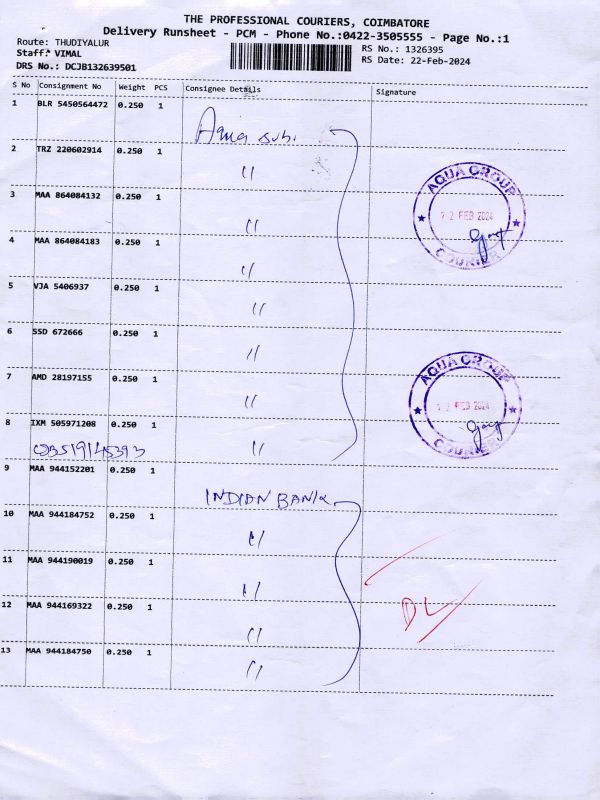 THE PROFESSIONAL COURIERS, COIMBATORE
Delivery Runsheet - PCM - Phone No.:0422-3505555 - Page No.:1
Route: THUDIYALUR
Staff: VIMAL
DRS No.: DCJB132639501
RS No.: 1326395
RS Date: 22-Feb-2024
S No Consignment No Weight PCS Consignee Details Signature
1 BLR 5450564472 0.250 1
Aqua Subi
2 TRZ 220602914 0.250 1 "
3 MAA 864084132 0.250 1 "
4 MAA 864084183 0.250 1 "
5 VJA 5406937 0.250 1 "
6 SSD 672666 0.250 1 "
7 AMD 28197155 0.250 1 "
8 IXM 505971208 0.250 1 "
AQUA GROUP
22 FEB 2024
COURIER
AQUA GROUP
22 FEB 2024
COURIER
9 MAA 944152201 0.250 1 INDIAN BANK
10 MAA 944184752 0.250 1 "
11 MAA 944190019 0.250 1 "
12 MAA 944169322 0.250 1 "
13 MAA 944184750 0.250 1 "
DL